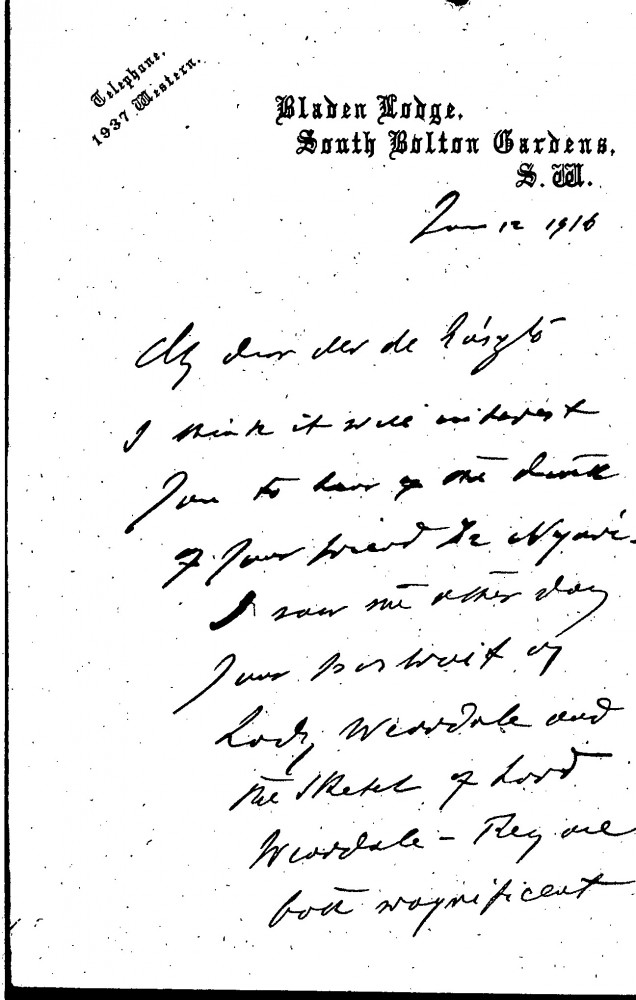 Telephone,
1937 Western.
Bladen Lodge,
South Bolton Gardens,
S.W.
12 1916
My dear de László
I think it will interest
you to hear of the death
of your friend Nyári.
I saw the other day
your portrait of
Lady Weardale and
the sketch of Lord
Weardale – They are
both magnificent